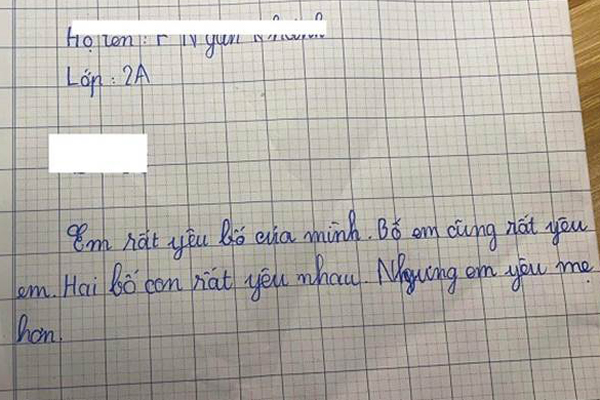 Họ tên:
Lớp: 2A
Em rất yêu bố của mình. Bố em cũng rất yêu
em. Hai bố con rất yêu nhau. Nhưng em yêu mẹ
hơn.